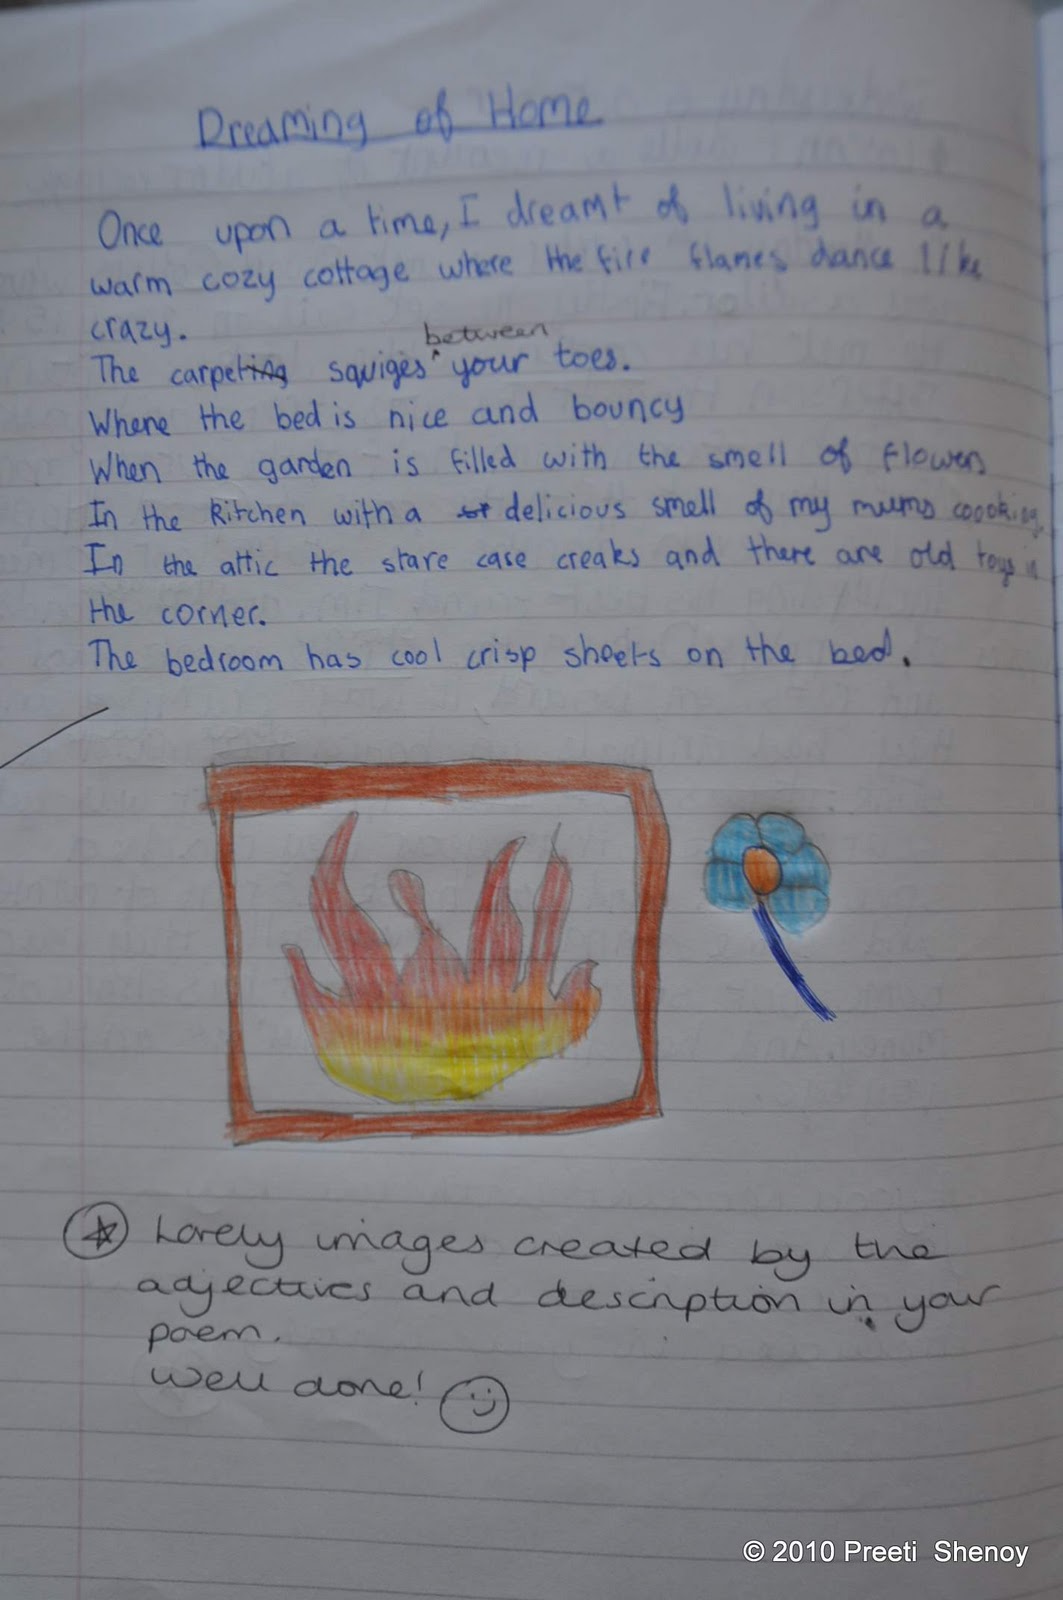 Dreaming of Home
Once upon a time, I dreamt of living in a
warm cozy cottage where the fire flames dance like
crazy.
between
The carpeting squiges your toes.
Where the bed is nice and bouncy
When the garden is filled with the smell of flowers
In the kitchen with a delicious smell of my mums coooking.
In the attic the stare case creaks and there are old toys in
the corner.
The bedroom has cool crisp sheets on the bed.
Lovely images created by the
adjectives and description in your
poem.
Well done!
© 2010 Preeti Shenoy